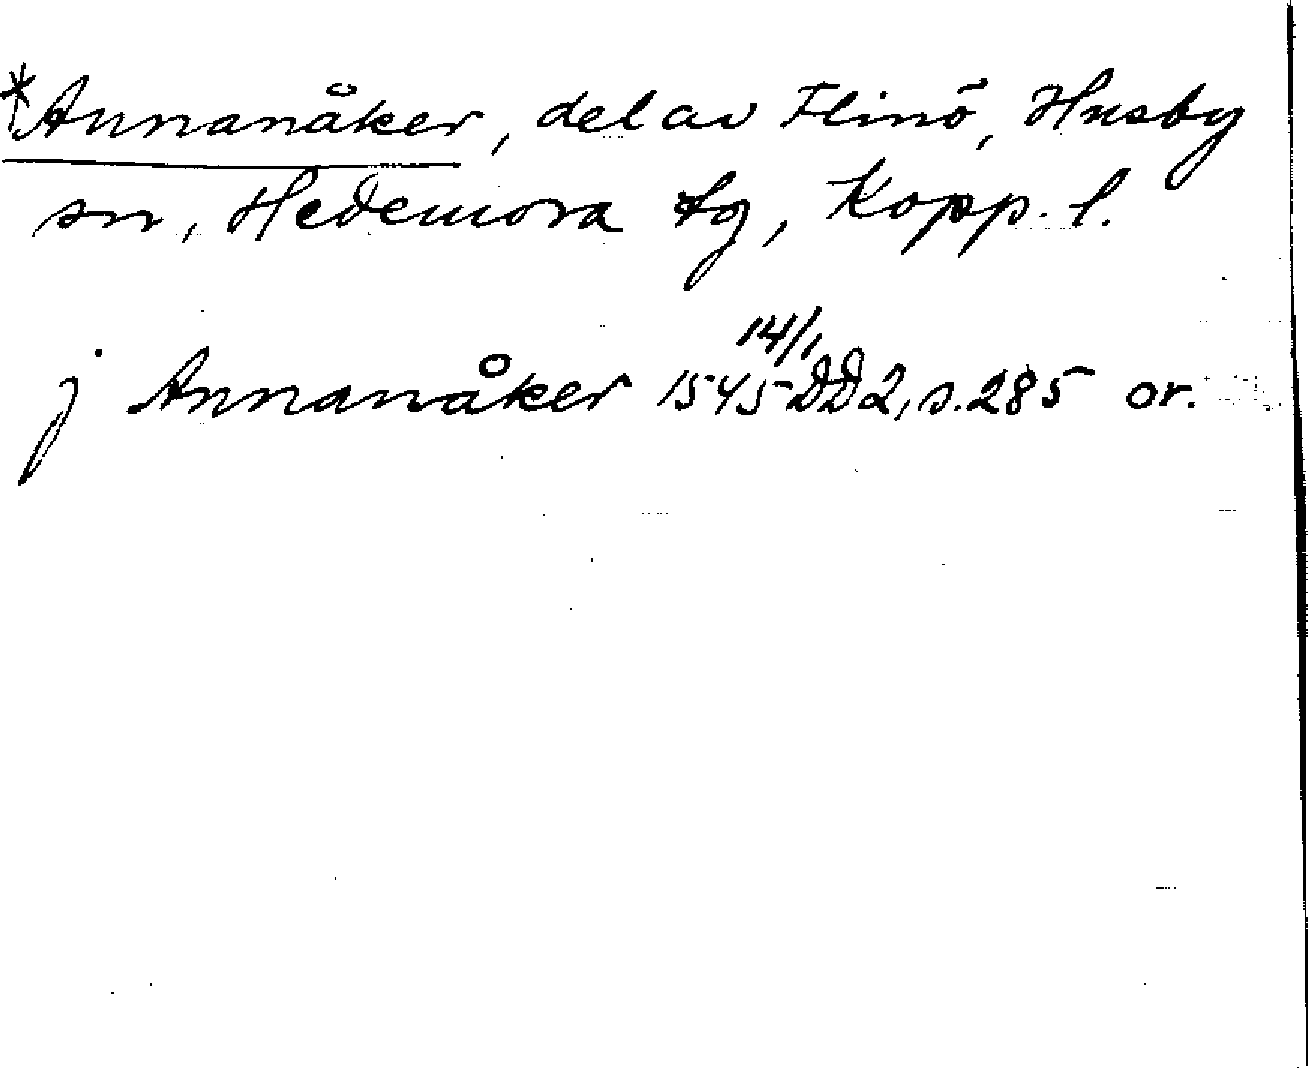 *Annanåker, del av Flinö, Husby
sn, Hedemora tg, Kopp. l.
j Annanåker 1545 14/1 DD2, s. 285 or.